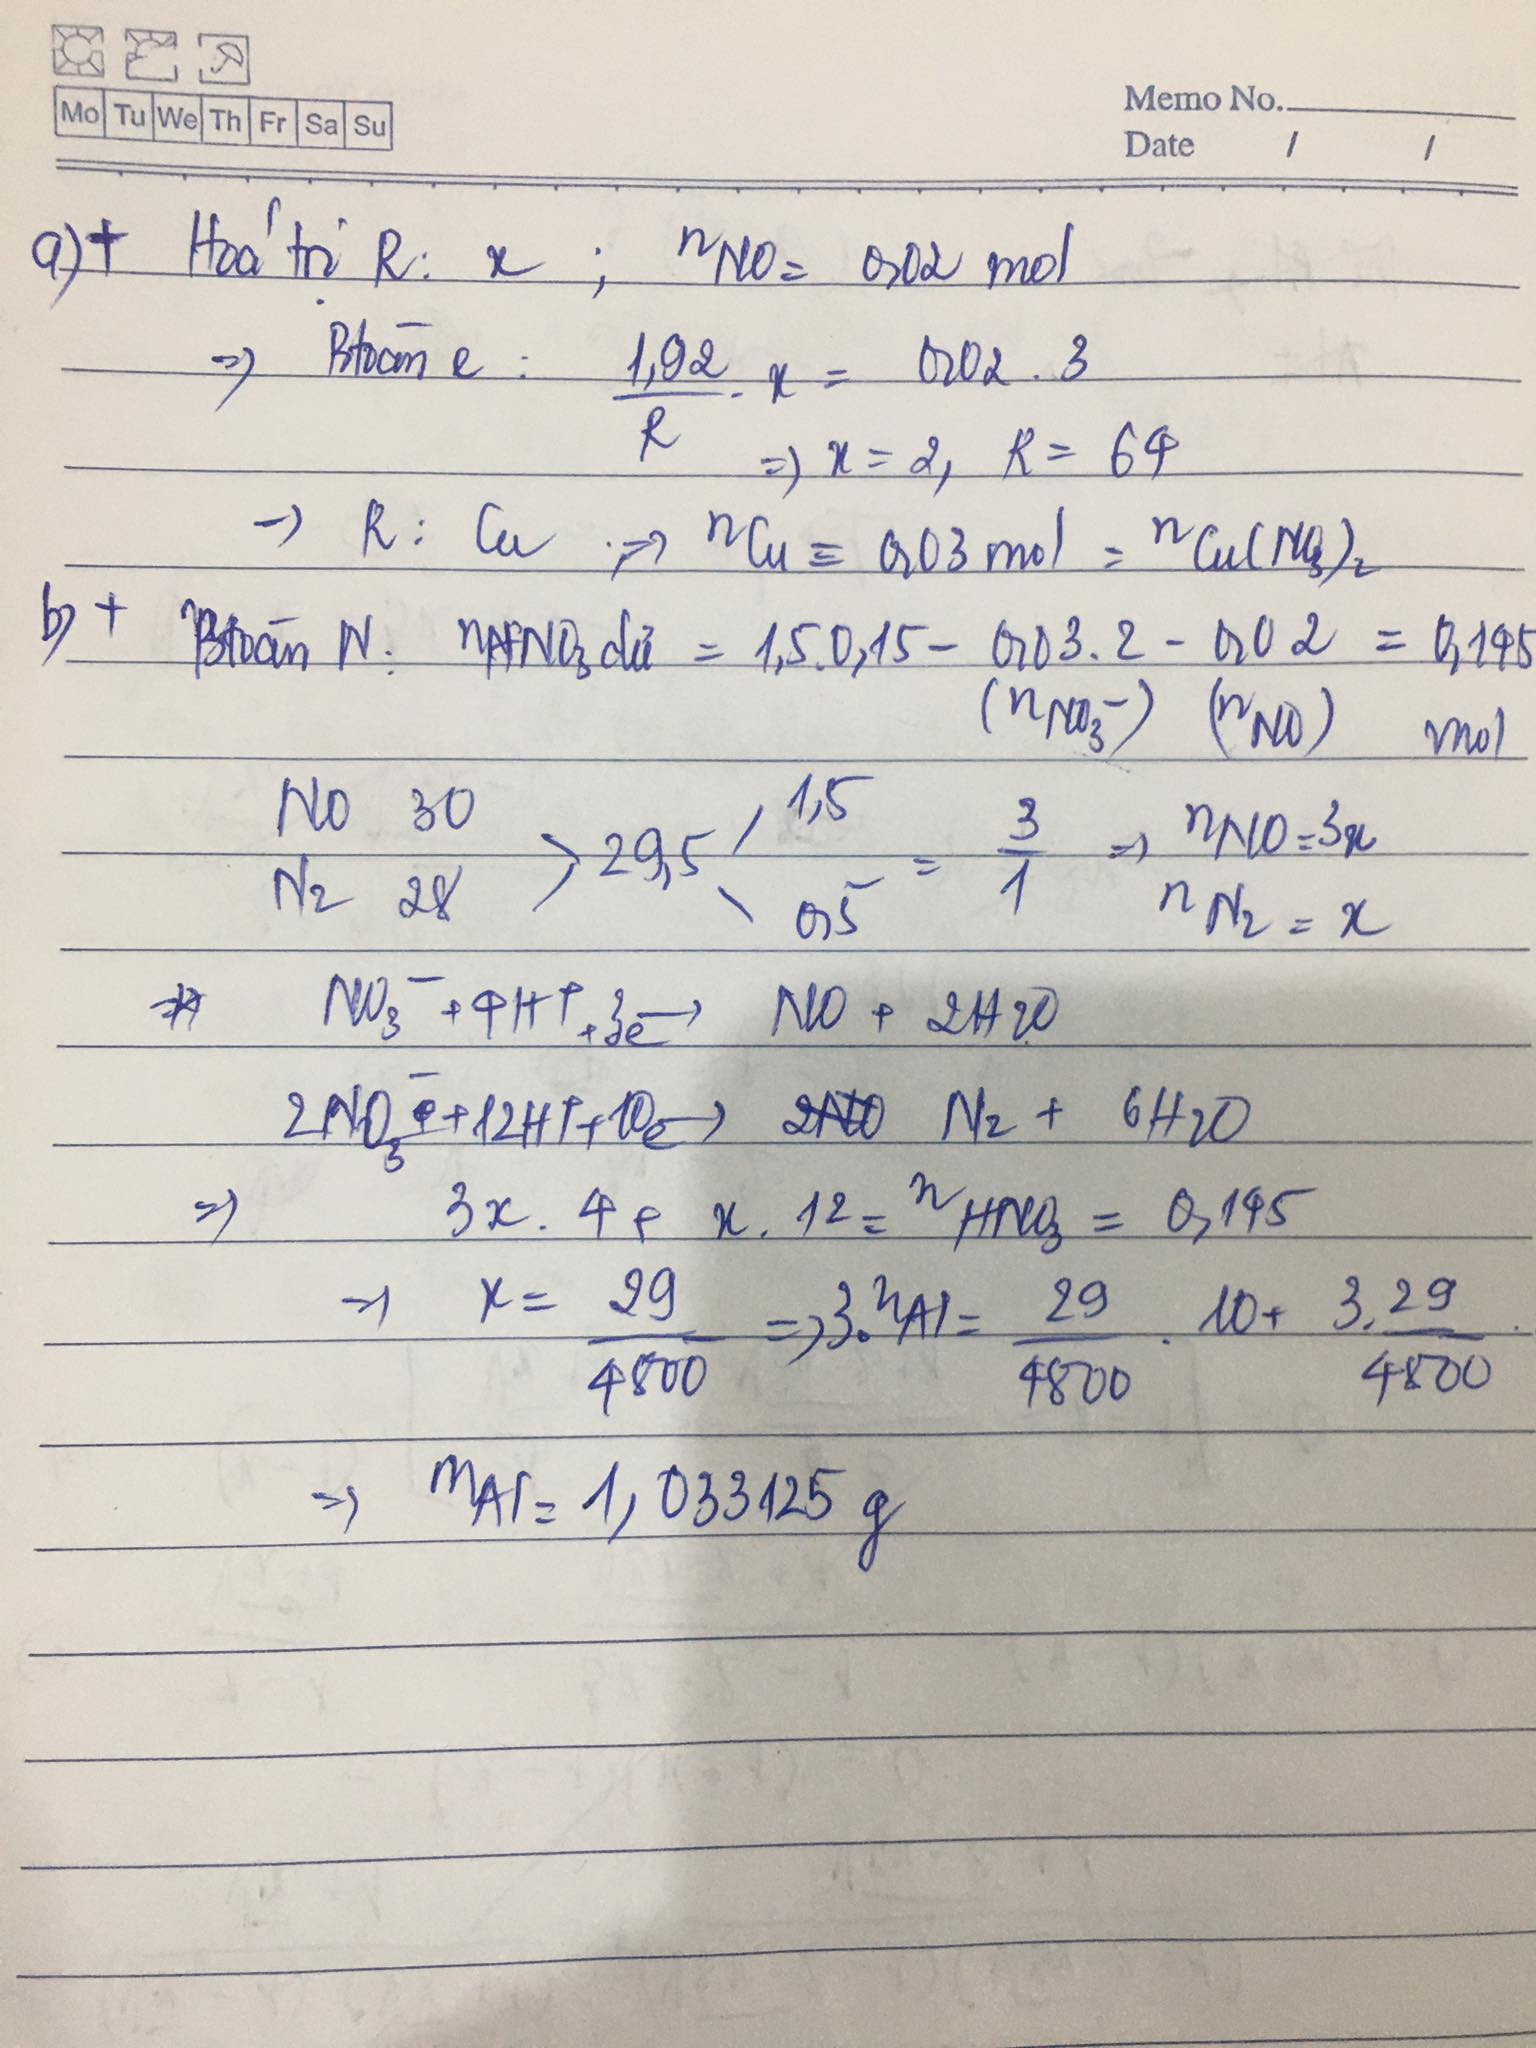 Mo Tu We Th Fr Sa Su
Memo No.
Date / /
a) + Hoá trị R: x ; nNO = 0,02 mol
=> Btoàn e : 1,92/R . x = 0,02 . 3
=> x = 2, R = 64
-> R: Cu -> nCu = 0,03 mol = nCu(NO3)2
b) + Btoàn N: nHNO3 dư = 1,5.0,15 - 0,03.2 - 0,02 = 0,145
(nNO3-) (nNO) mol
NO 30
1,5
29,5 = 3/1 => nNO = 3x
N2 28
0,5
nN2 = x
=> NO3- + 4H+ + 3e -> NO + 2H2O
2NO3- + 12H+ + 10e -> N2 + 6H2O
=> 3x. 4 + x. 12 = nHNO3 = 0,145
-> x = 29/4800 => 3.nAl = 29/4800 . 10 + 3.29/4800 .
=> mAl = 1,033125 g